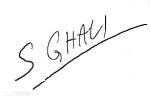 S GHALI